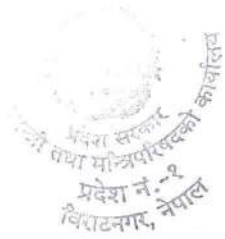 प्रदेश सरकार
मन्त्री तथा मन्त्रिपरिषदको कार्यालय
प्रदेश नं.-१
विराटनगर, नेपाल